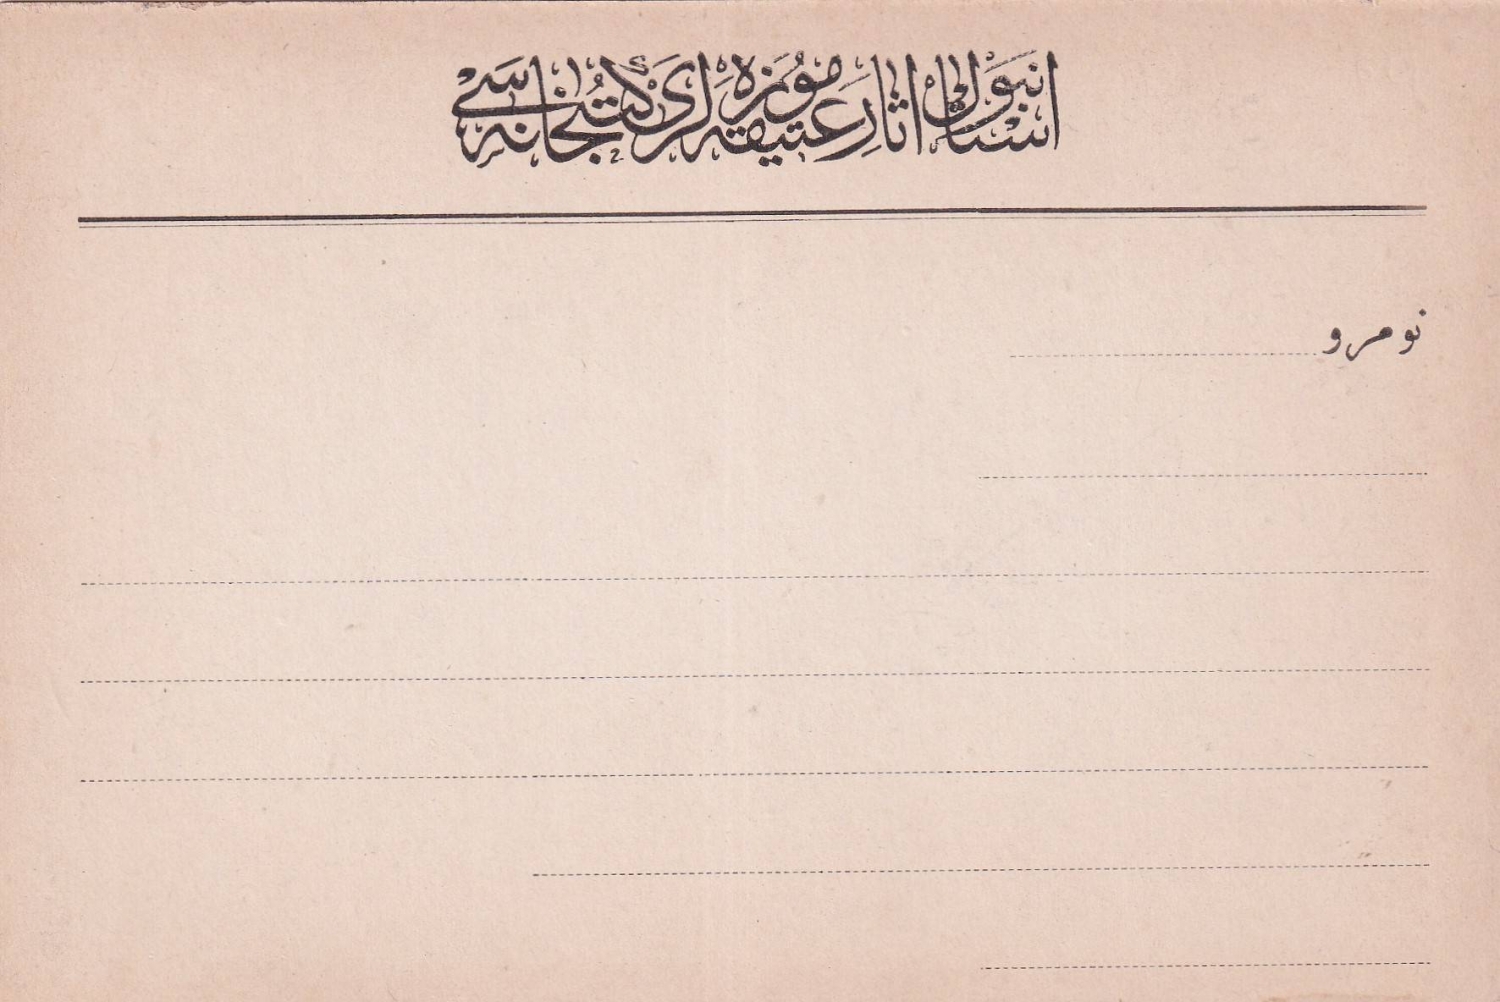 استانبول آثار عتیقه موزه‌لری کتبخانه‌سی
نومرو